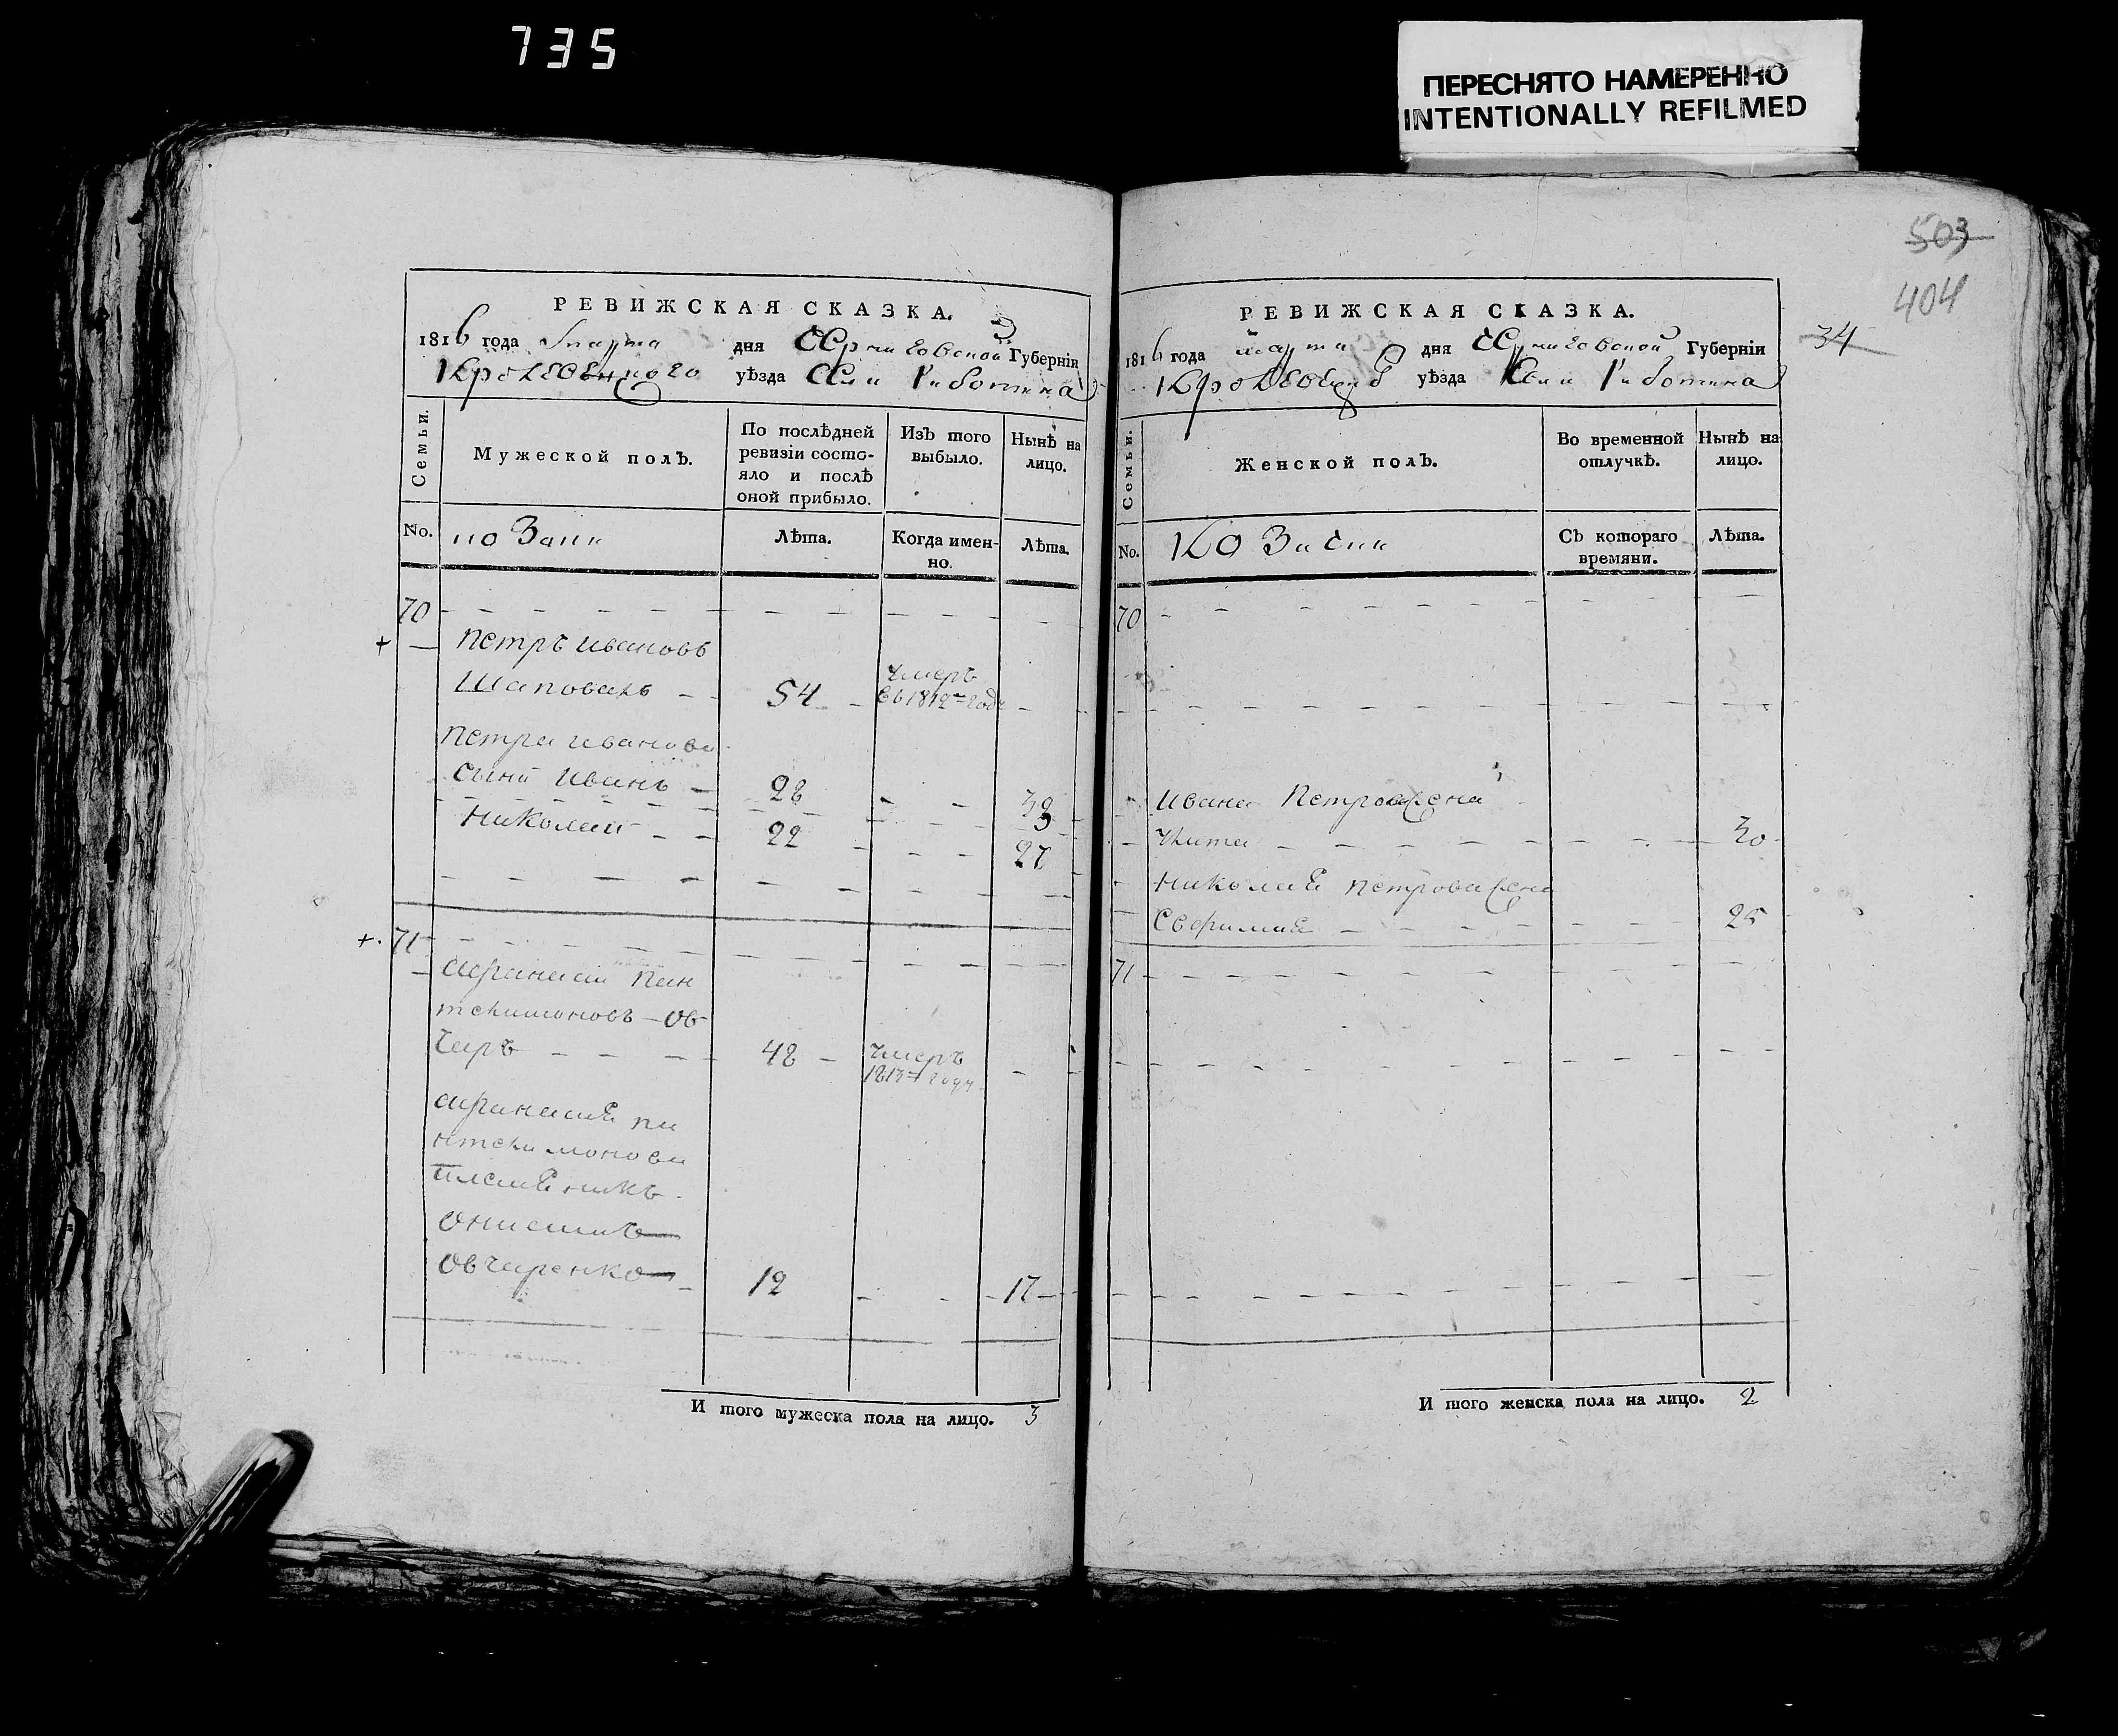 735
ПЕРЕСНЯТО НАМЕРЕННО
INTENTIONALLY REFILMED
503
404
34
РЕВИЖСКАЯ СКАЗКА.
1816 года марта дня Черниговской Губерніи
Кролевецкого уѣзда
Семьи.
Мужеской полъ.
По послѣдней ревизіи состо-
яло и послѣ
оной прибыло.
Изъ того
выбыло.
Нынѣ на
лицо.
No.
Лѣта.
Когда имен-
но.
Лѣта.
70
Петръ Ивановъ
Шаповалъ 54 Умеръ
въ 1812 году
Петра Иванова
сынъ Иванъ 28 33
Николай 22 27
71
Афанасій Пан
телимоновъ Ов
чаръ 48 Умеръ
году
Афанасія Па
нтелимонова
племеникъ
Онисимъ
Овчаренко 12 17
И того мужеска пола на лицо. 3
РЕВИЖСКАЯ СКАЗКА.
1816 года марта дня Черниговской Губерніи
уѣзда
Семьи.
Женской полъ.
Во временной
отлучкѣ.
Нынѣ на
лицо.
No.
Съ котораго
времяни.
Лѣта.
70
Ивана Петрова жена
30
Николая Петрова жена
Евфимия 25
71
И того женска пола на лицо. 2